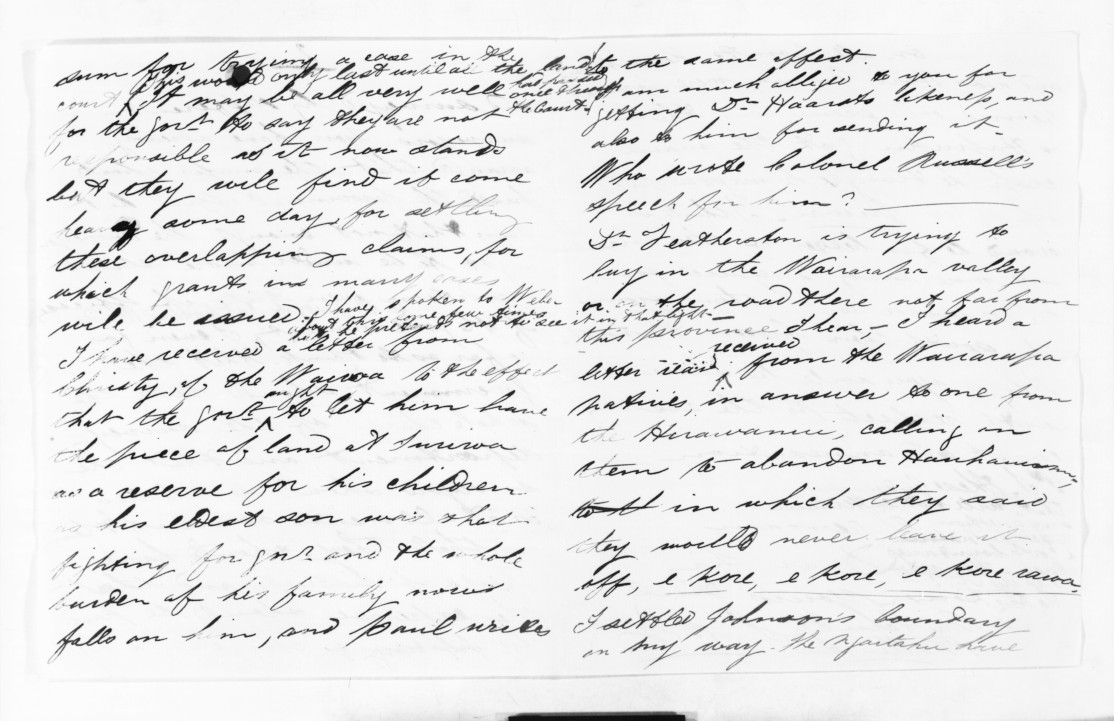 sum for trying a case in the
this would only last until all the land
had passed
once through
the Court
court. It may be all very well
for the Govt to say they are not
responsible as it now stands
but they will find it come
heavy some day, for settling
these overlapping claims, for
which grants in many cases
will be issued. I have spoken to Weber
about this one few times
but he pretends not to see it in that light—
I have received a letter from
Christy, of the Wairoa to the effect
that the Govt ought to let him have
the piece of land at Turiroa
as a reserve for his children
as his eldest son was shot
fighting for Govt and the whole
burden of his family now
falls on him, and Paul writes
to the same effect.
I am much obliged to you for
getting Dr Haasts likeness, and
also to him for sending it—
Who wrote Colonel Russell's
speech for him?
Dr Featherston is trying to
buy in the Wairarapa valley
or on the road there not far from
this province I hear,— I heard a
letter read received from the Wairarapa
natives, in answer to one from
the calling on
them to abandon Hauhauism,
in which they said
they would never leave it
off, e kore, e kore, e kore rawa.
I settled Johnson's boundary
on my way. The Ngaitahu have